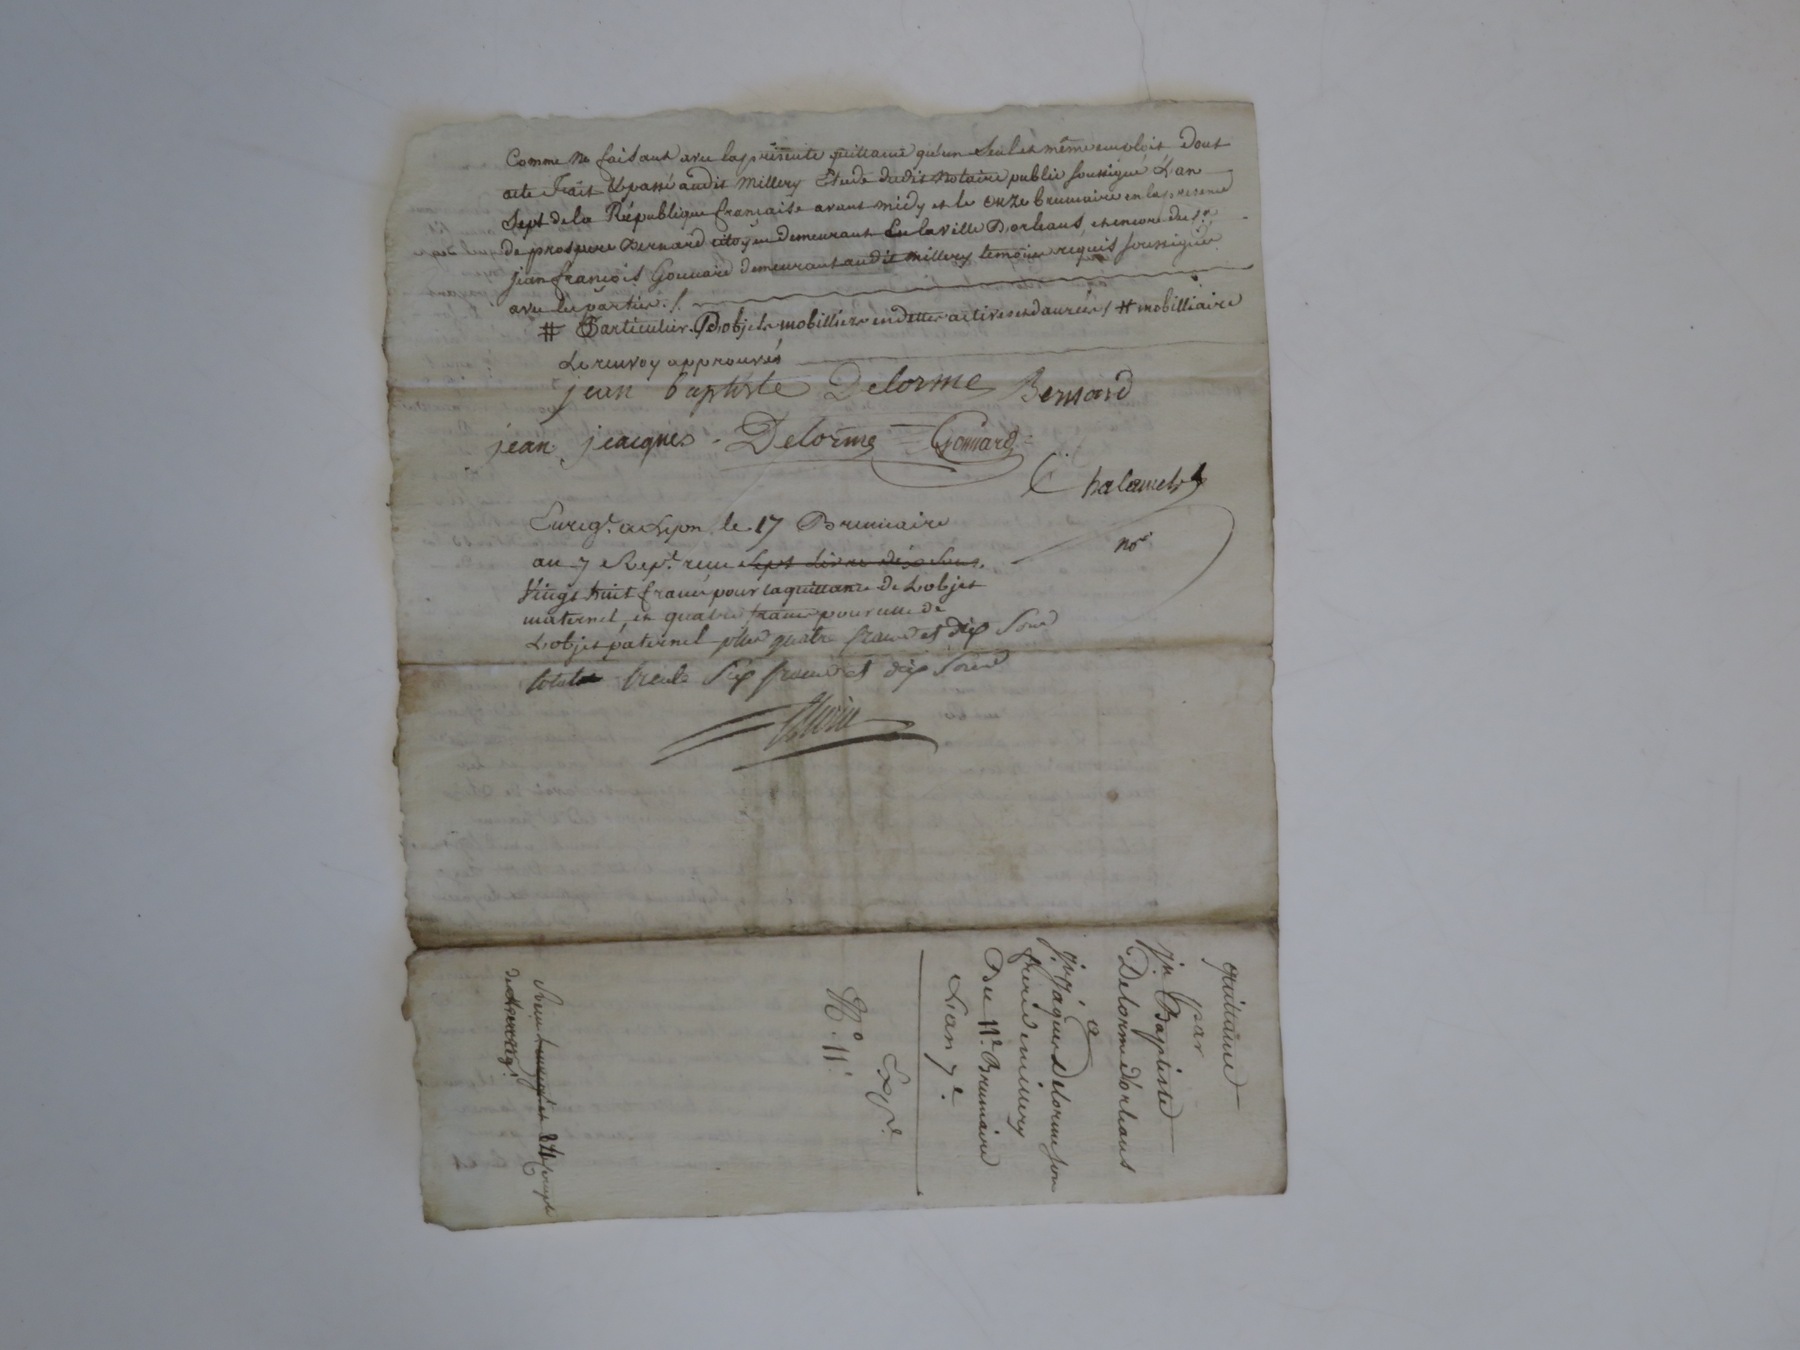 Comme ne faisant avec la présente quittance qu'un Seul et même emploit Dont
acte Fait & passé audit Millery Etude dudit Notaire public soussigné L'an
Sept de la République française avant midy et le onze brumaire en la presence
de prospere Bernard citoyen demeurant En la ville Dorleans, et encore de sr.
jean françois Gonnard demeurant audit Millery temoins requis soussignés
avec les parties ./.
# Particulier. # D'objets mobilliers en dettes actives et daurées / # mobilliaire
Le renvoy approuvés
jean baptiste Delorme Bernard
jean jeacques Delorme Gonnard
Chalamel
noe
Enregt. a Lyon le 17 Brumaire
an 7 e Rep. reçu Sept Livre dix Sous.
Vingt huit francs pour la quittance de L'objet
maternel, et quatre francs pour celle de
L'objet paternel plus quatre francs et dix Sous
total trente Six francs et dix Sous
quittance
par
jn. Baptiste
Delorme d'orleans
a
jn. Jâques Delorme son
frere de millery
Du 11e. Brumaire
L'an 7e.
Expe.
No. 11.